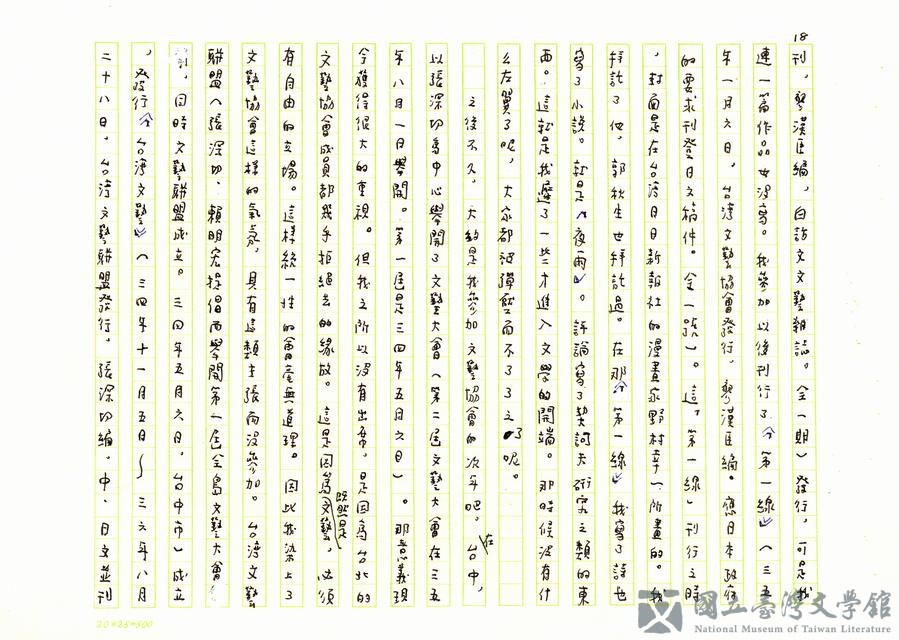 18
刊，廖漢臣編，白話文文藝雜誌。全一期）發行，可是我
連一篇作品也沒寫。我參加以後刊行了《第一線》（三五
年一月六日，台灣文藝協會發行，廖漢臣編。應日本政府
的要求刊登日文稿件。全一號）。這，第一線）刊行之時
，封面是在台灣日日新報社的漫畫家野村幸一所畫的。我
拜託了他，郭秋生也拜託過。在那《第一線》我寫了詩也
寫了小說。就是《夜雨》。評論寫了契訶夫研究之類的東
西。這就是我遲了一些才進入文學的開端。那時候沒有什
么左翼了呢，大家都被彈壓而不了了之了呢。
之後不久，大約是我參加文藝協會的次年吧，在台中，
以張深切為中心舉開了文藝大會（第二屆文藝大會在三五
年八月一日舉開。第一屆是三四年五月六日）。那意義現
今獲得很大的重視。但我之所以沒有出席，是因為台北的
文藝協會成員都幾乎拒絕去的緣故。這是因為既然是文藝，必須
有自由的立場。這樣統一性的會毫無道理。因此我染上了
文藝協會這樣的氣氛，具有這類主張而沒參加。台灣文藝
聯盟（張深切、賴明宏提倡而舉開第一屆全島文藝大會
，同時文藝聯盟成立。三四年五月六日。台中市）成立
，發行《台灣文藝》（三四年十一月五日～三六年八月
二十八日，台灣文藝聯盟發行，張深切編，中、日文並刊
20×25=500
國立臺灣文學館
National Museum of Taiwan Literature